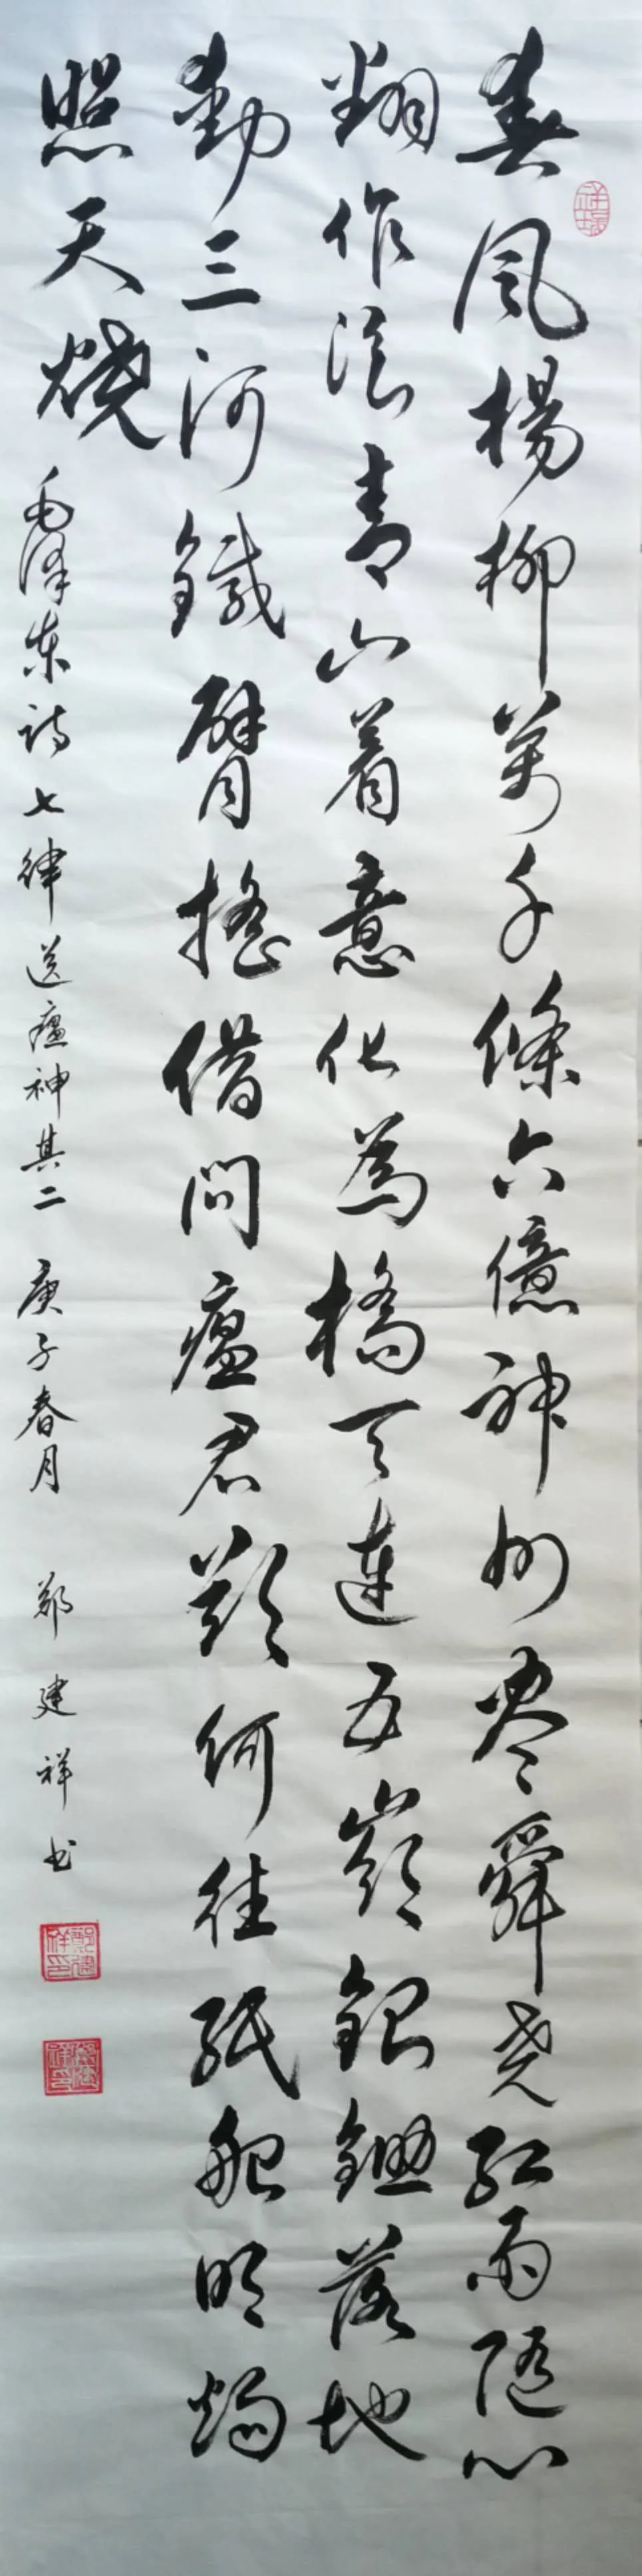 春風楊柳萬千條六億神州尽舜尧红雨随心
翻作浪青山着意化為橋天連五嶺銀鋤落地
動三河鐵臂搖借問瘟君欲何往紙船明燭
照天燒
毛泽东诗七律送瘟神其二 庚子春月 郑建祥书
鄭建祥印